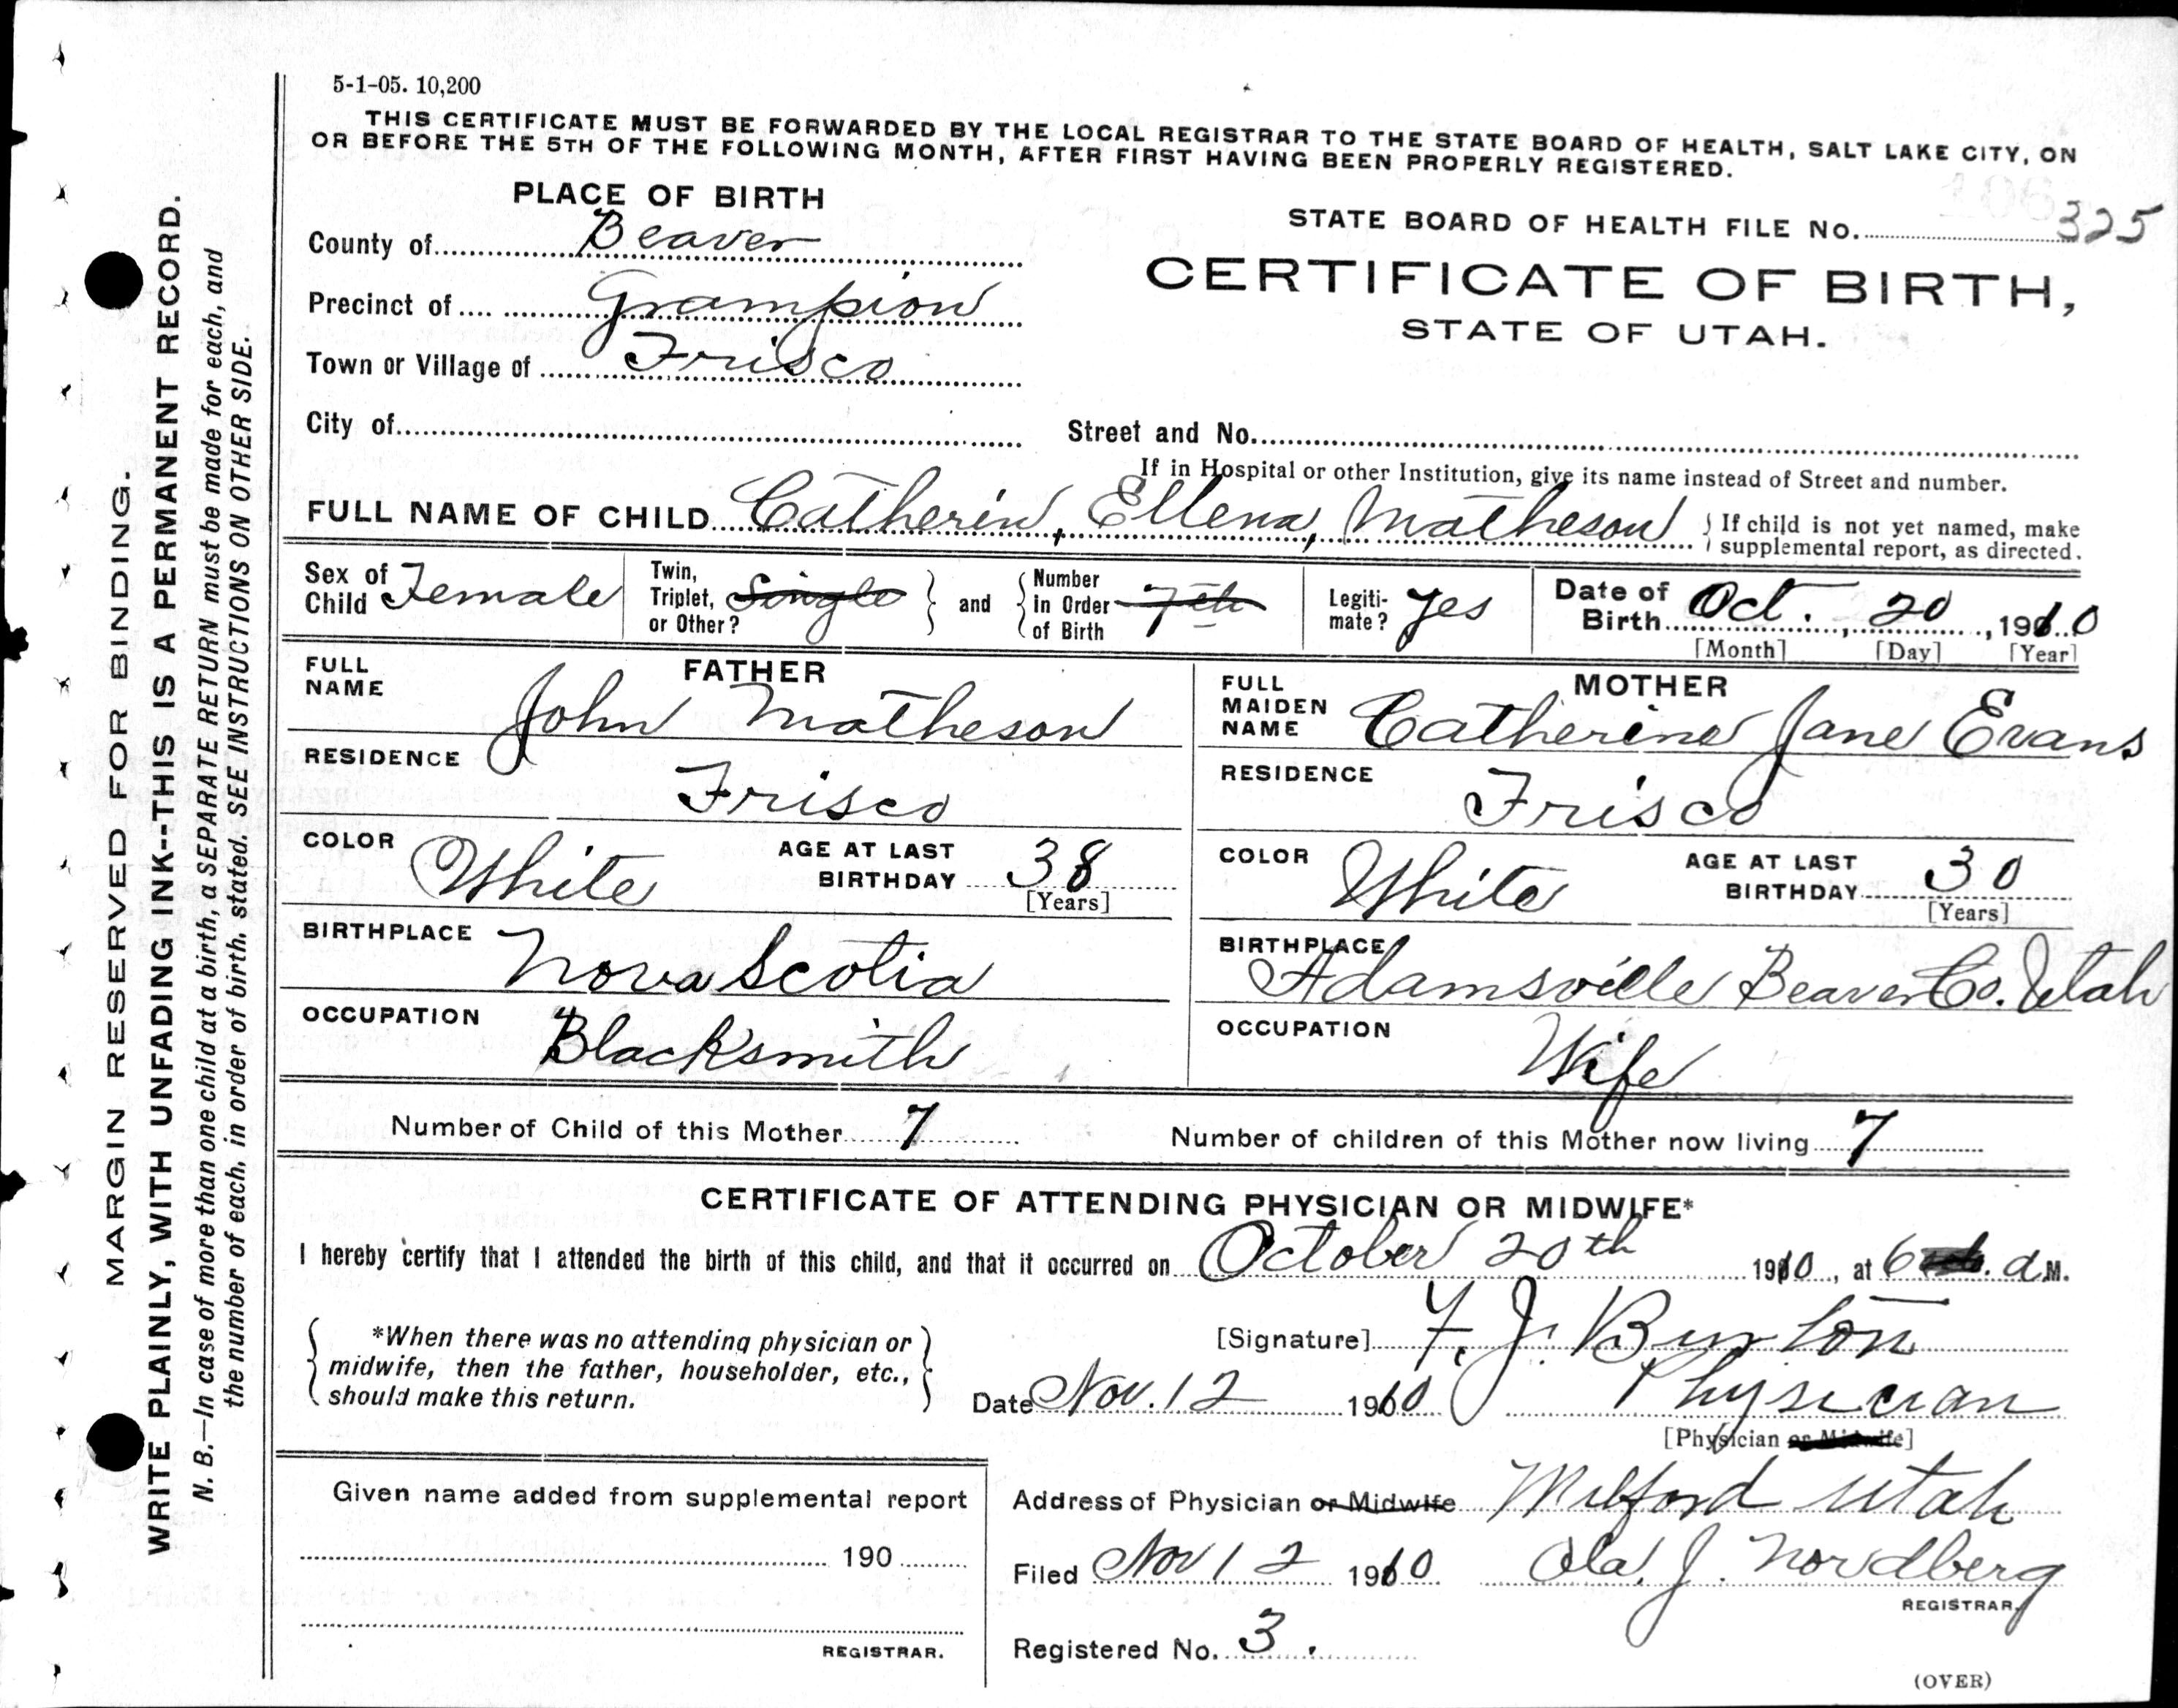 5-1-05. 10,200
THIS CERTIFICATE MUST BE FORWARDED BY THE LOCAL REGISTRAR TO THE STATE BOARD OF HEALTH, SALT LAKE CITY, ON
OR BEFORE THE 5TH OF THE FOLLOWING MONTH, AFTER FIRST HAVING BEEN PROPERLY REGISTERED.
PLACE OF BIRTH
STATE BOARD OF HEALTH FILE No. 325
County of Beaver
CERTIFICATE OF BIRTH,
Precinct of Grampion
STATE OF UTAH.
Town or Village of Frisco
City of
Street and No.
If in Hospital or other Institution, give its name instead of Street and number.
FULL NAME OF CHILD Catherin, Ellena, Matheson { If child is not yet named, make
supplemental report, as directed.
Sex of Child Female
Twin, Triplet, or Other? Single } and { Number in Order of Birth 7th
Legiti-mate? yes
Date of Birth Oct. 20, 1910
[Month] [Day] [Year]
FATHER
FULL NAME John Matheson
RESIDENCE Frisco
COLOR White AGE AT LAST BIRTHDAY 38
[Years]
BIRTHPLACE Nova Scotia
OCCUPATION Blacksmith
MOTHER
FULL MAIDEN NAME Catherine Jane Evans
RESIDENCE Frisco
COLOR White AGE AT LAST BIRTHDAY 30
[Years]
BIRTHPLACE Adamsville Beaver Co. Utah
OCCUPATION Wife
Number of Child of this Mother 7 Number of children of this Mother now living 7
CERTIFICATE OF ATTENDING PHYSICIAN OR MIDWIFE*
I hereby certify that I attended the birth of this child, and that it occurred on October 20th 1910, at 6 a.M.
{ *When there was no attending physician or
midwife, then the father, householder, etc.,
should make this return. }
[Signature] F. J. Burton
Date Nov. 12 1910 Physician
[Physician or Midwife]
Given name added from supplemental report
190
REGISTRAR.
Address of Physician or Midwife Milford Utah
Filed Nov 12 1910 Ola. J. Nordberg
REGISTRAR.
Registered No. 3.
(OVER)
MARGIN RESERVED FOR BINDING.
WRITE PLAINLY, WITH UNFADING INK--THIS IS A PERMANENT RECORD.
N. B.—In case of more than one child at a birth, a SEPARATE RETURN must be made for each, and
the number of each, in order of birth, stated. SEE INSTRUCTIONS ON OTHER SIDE.